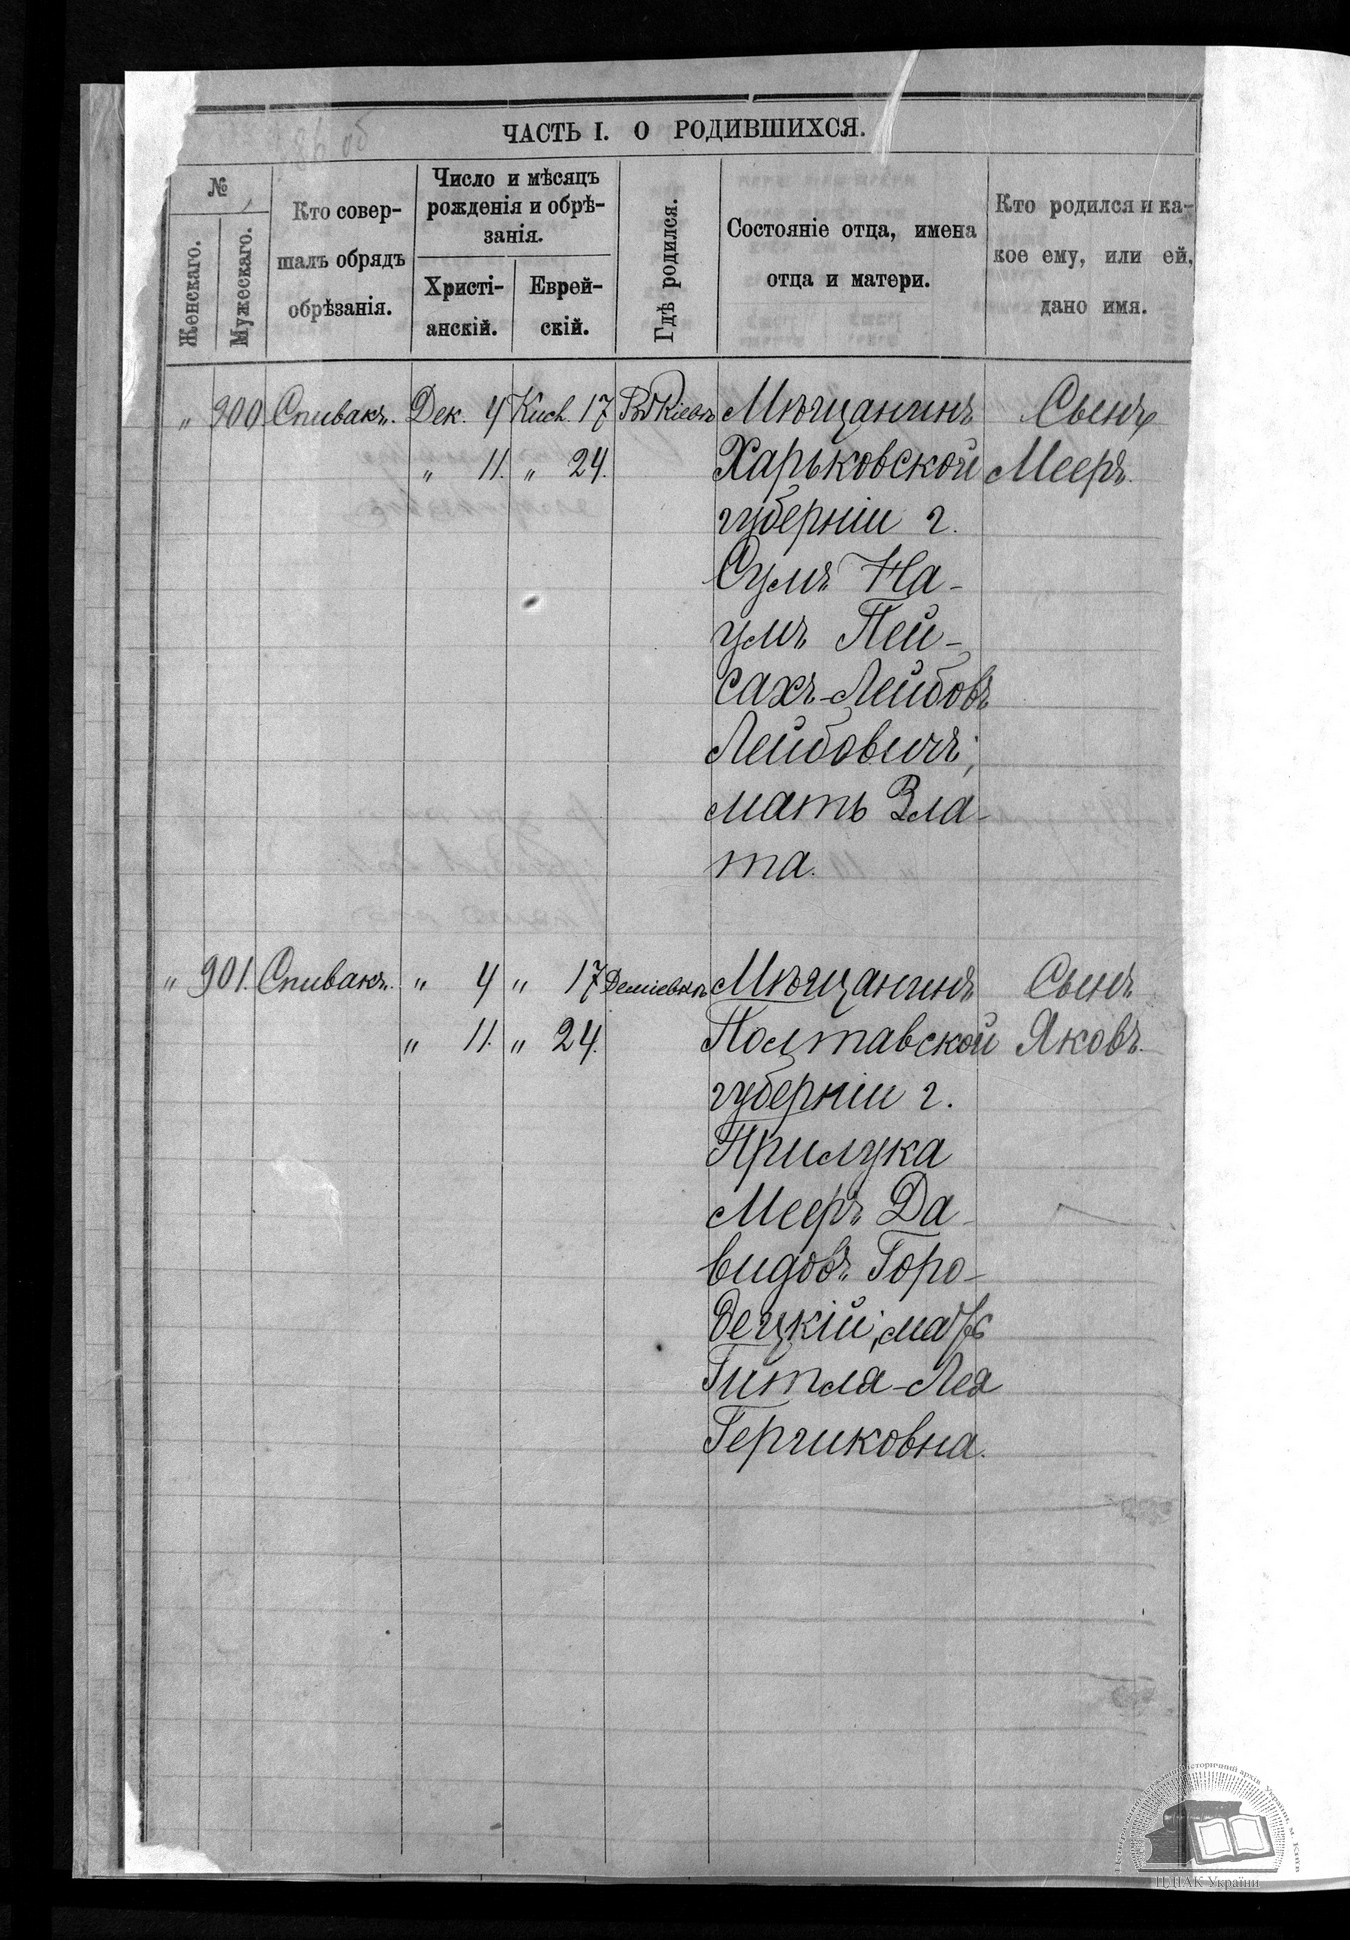 ЧАСТЬ I. О РОДИВШИХСЯ.
№
Женскаго.
Мужескаго.
Кто совер-
шалъ обрядъ
обрѣзанія.
Число и мѣсяцъ
рожденія и обрѣ-
занія.
Христі-
анскій.
Еврей-
скій.
Гдѣ родился.
Состояніе отца, имена
отца и матери.
Кто родился и ка-
кое ему, или ей,
дано имя.
„ 900 Спивакъ. Дек. 4 Кисл. 17 Въ Кіевѣ Мѣщанинъ Сынъ
„ 11. „ 24. Харьковской Мееръ.
губерніи г.
Сумъ На-
умъ Пей-
сахъ-Лейбовъ
Лейбовичъ;
мать Зла-
та.
„ 901. Спивакъ. „ 4 „ 17 Деміевкѣ Мѣщанинъ Сынъ
„ 11. „ 24. Полтавской Яковъ.
губерніи г.
Прилука
Мееръ Да-
видовъ Горо-
децкій; мать
Гитля-Лея
Гершковна.
ЦДІАК України